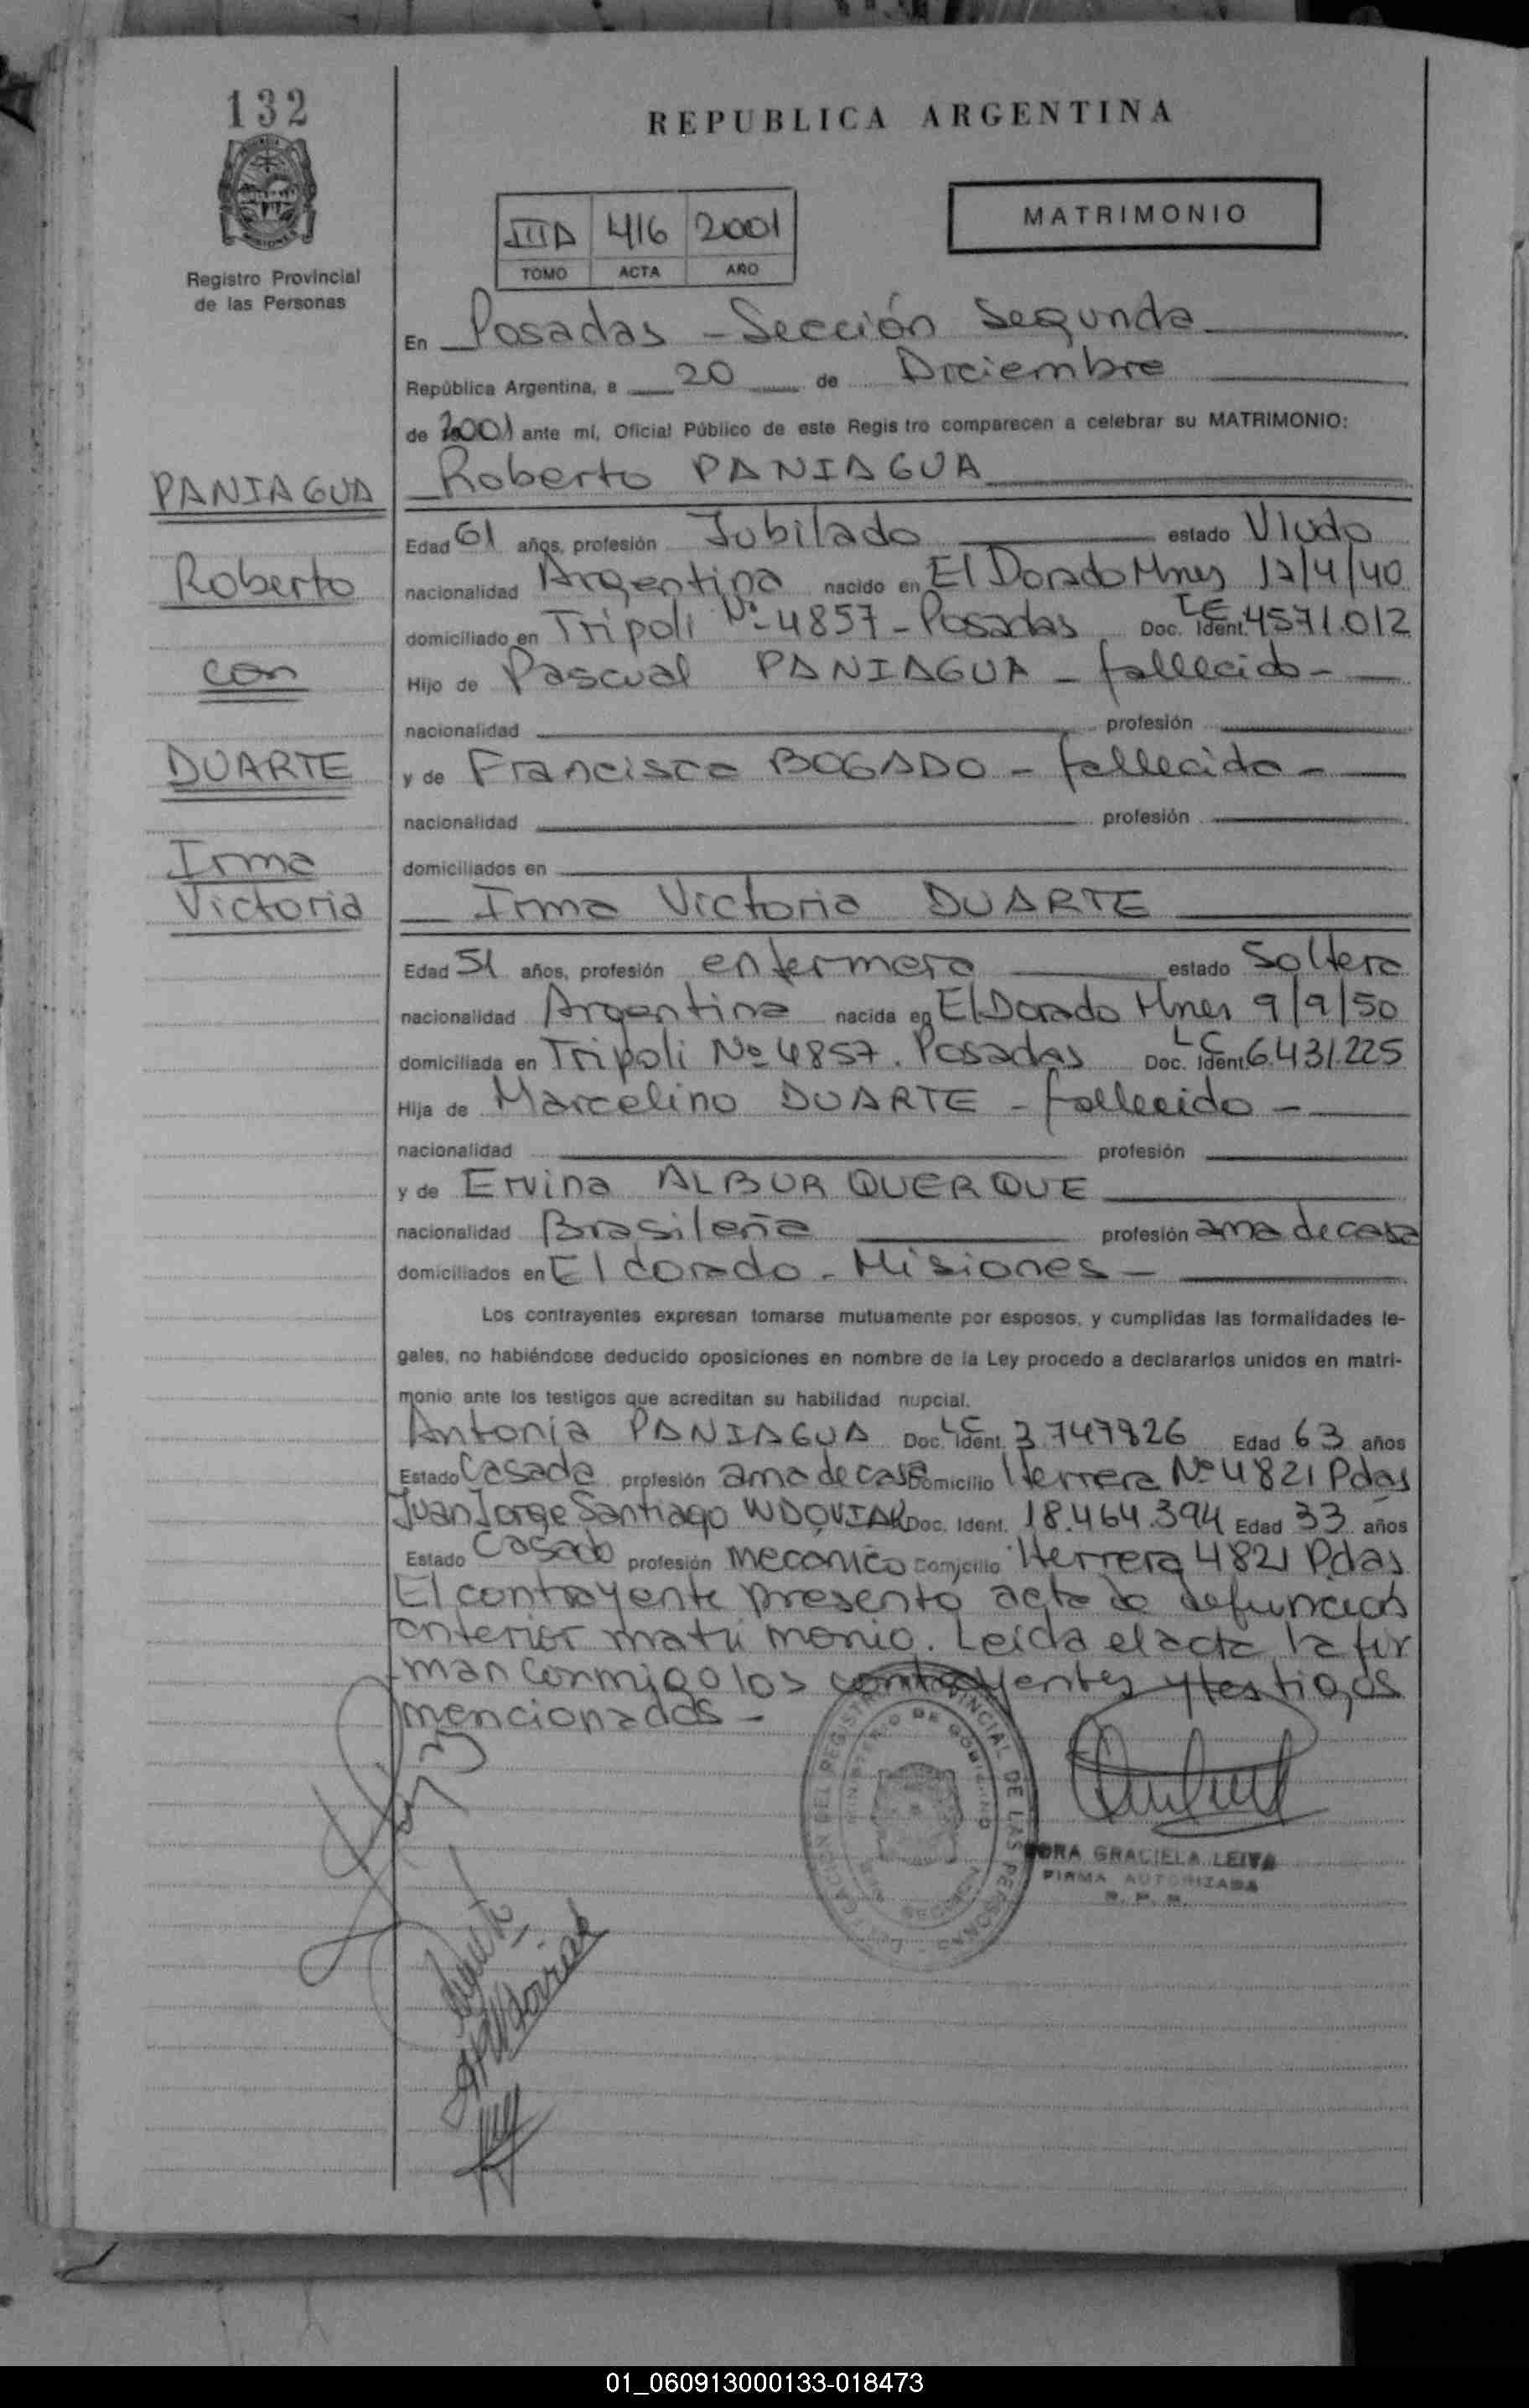 132
REPUBLICA ARGENTINA
MATRIMONIO
IIID 416 2001
TOMO ACTA AÑO
Registro Provincial
de las Personas
En Posadas - Sección Segunda
República Argentina, a 20 de Diciembre
de 2001 ante mí, Oficial Público de este Regis tro comparecen a celebrar su MATRIMONIO:
PANIAGUA
Roberto
con
DUARTE
Irma
Victoria
Roberto PANIAGUA
Edad 61 años, profesión Jubilado estado Viudo
nacionalidad Argentina nacido en El Dorado Mnes 12/4/40
domiciliado en Tripoli Nº 4857 - Posadas Doc. Ident. LE 4571.012
Hijo de Pascual PANIAGUA - fallecido -
nacionalidad profesión
y de Francisca BOGADO - fallecida -
nacionalidad profesión
domiciliados en
Irma Victoria DUARTE
Edad 51 años, profesión enfermera estado Soltera
nacionalidad Argentina nacida en El Dorado Mnes 9/9/50
domiciliada en Tripoli Nº 4857. Posadas Doc. Ident. LC 6.431.225
Hija de Marcelino DUARTE - fallecido -
nacionalidad profesión
y de Ervina ALBUR QUERQUE
nacionalidad Brasileña profesión ama de casa
domiciliados en El dorado - Misiones -
Los contrayentes expresan tomarse mutuamente por esposos, y cumplidas las formalidades le-
gales, no habiéndose deducido oposiciones en nombre de la Ley procedo a declararlos unidos en matri-
monio ante los testigos que acreditan su habilidad nupcial.
Antonia PANIAGUA Doc. Ident. LC 3.747826 Edad 63 años
Estado Casada profesión ama de casa Domicilio Herrera Nº 4821 Pdas
Juan Jorge Santiago WDOVIAK Doc. Ident. 18.464.394 Edad 33 años
Estado Casado profesión mecanico Domicilio Herrera 4821 Pdas
El contrayente presentó acta de defunción
anterior matri monio. Leida el acta, la fir
man conmigo los contrayentes y testigos
mencionados -
PROVINCIAL DE LAS PERSONAS
MINISTERIO DE GOBIERNO
GRACIELA LEIVA
FIRMA AUTORIZADA
R. P. P.
01_060913000133-018473